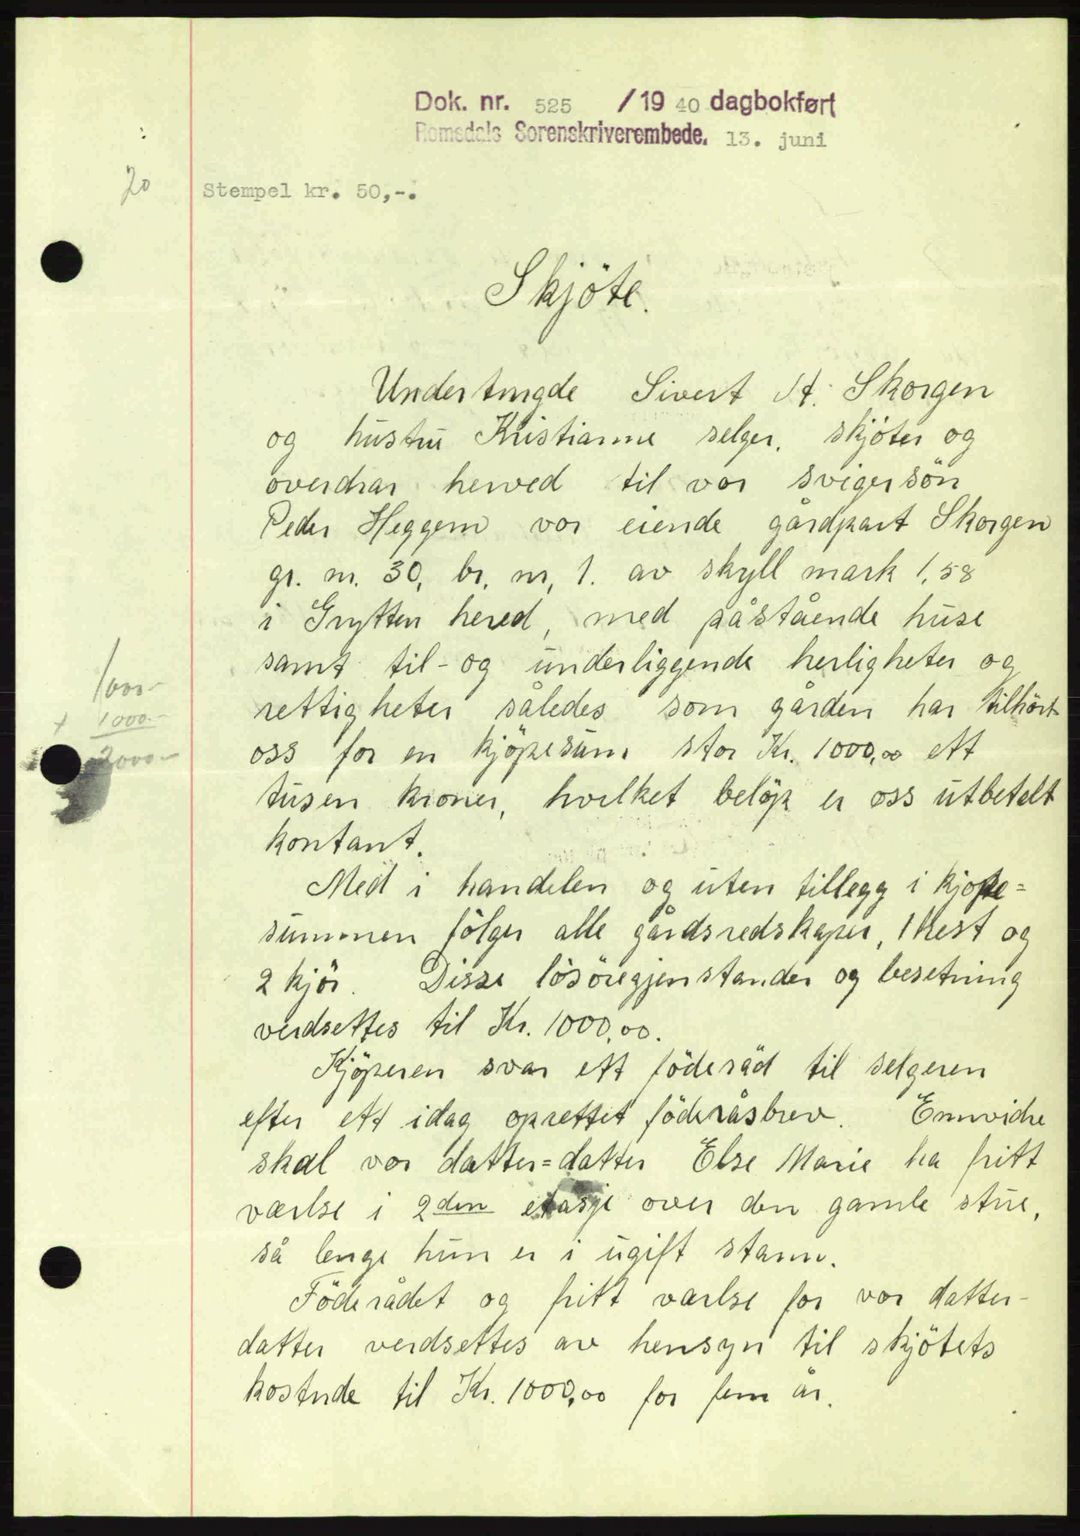 Dok. nr. 525 /19 40 dagbokført
Romsdals Sorenskriverembede. 13. juni
20
Stempel kr. 50,-.
Skjöte.
Undertengde Sivert A. Skorgen
og hustru Kristianne selger, skjöter og
overdrar herved til vor svigersön
Peder Heggem vor eiende gårdpart Skorgen
gr. nr. 30, br. nr, 1. av skyll mark 1,58
i Grytten hered, med påstående huse
samt til- og underliggende herligheter og
rettigheter således som gården har tilhört
oss for en kjöpesum stor Kr. 1000,00 ett
tusen kroner, hvilket belöp er oss utbetalt
kontant.
Med i handelen og uten tillegg i kjöpe=
summen fölger alle gårdsredskaper, 1 hest og
2 kjör. Disse lösöregjenstander og besetning
verdsettes til Kr. 1000,00.
Kjöperen svar ett föderåd til selgeren
efter ett idag oprettet föderåsbrev. Ennvidre
skal vor datter=datter Else Marie ha fritt
værlse i 2den etasje over den gamle stue,
så lenge hun er i ugift stann.
Föderådet og fritt værlse for vor datter-
datter verdsettes av hensyn til skjötets
kostnde til Kr. 1000,00 for fem år.
1000-
+ 1000.-
2000.-